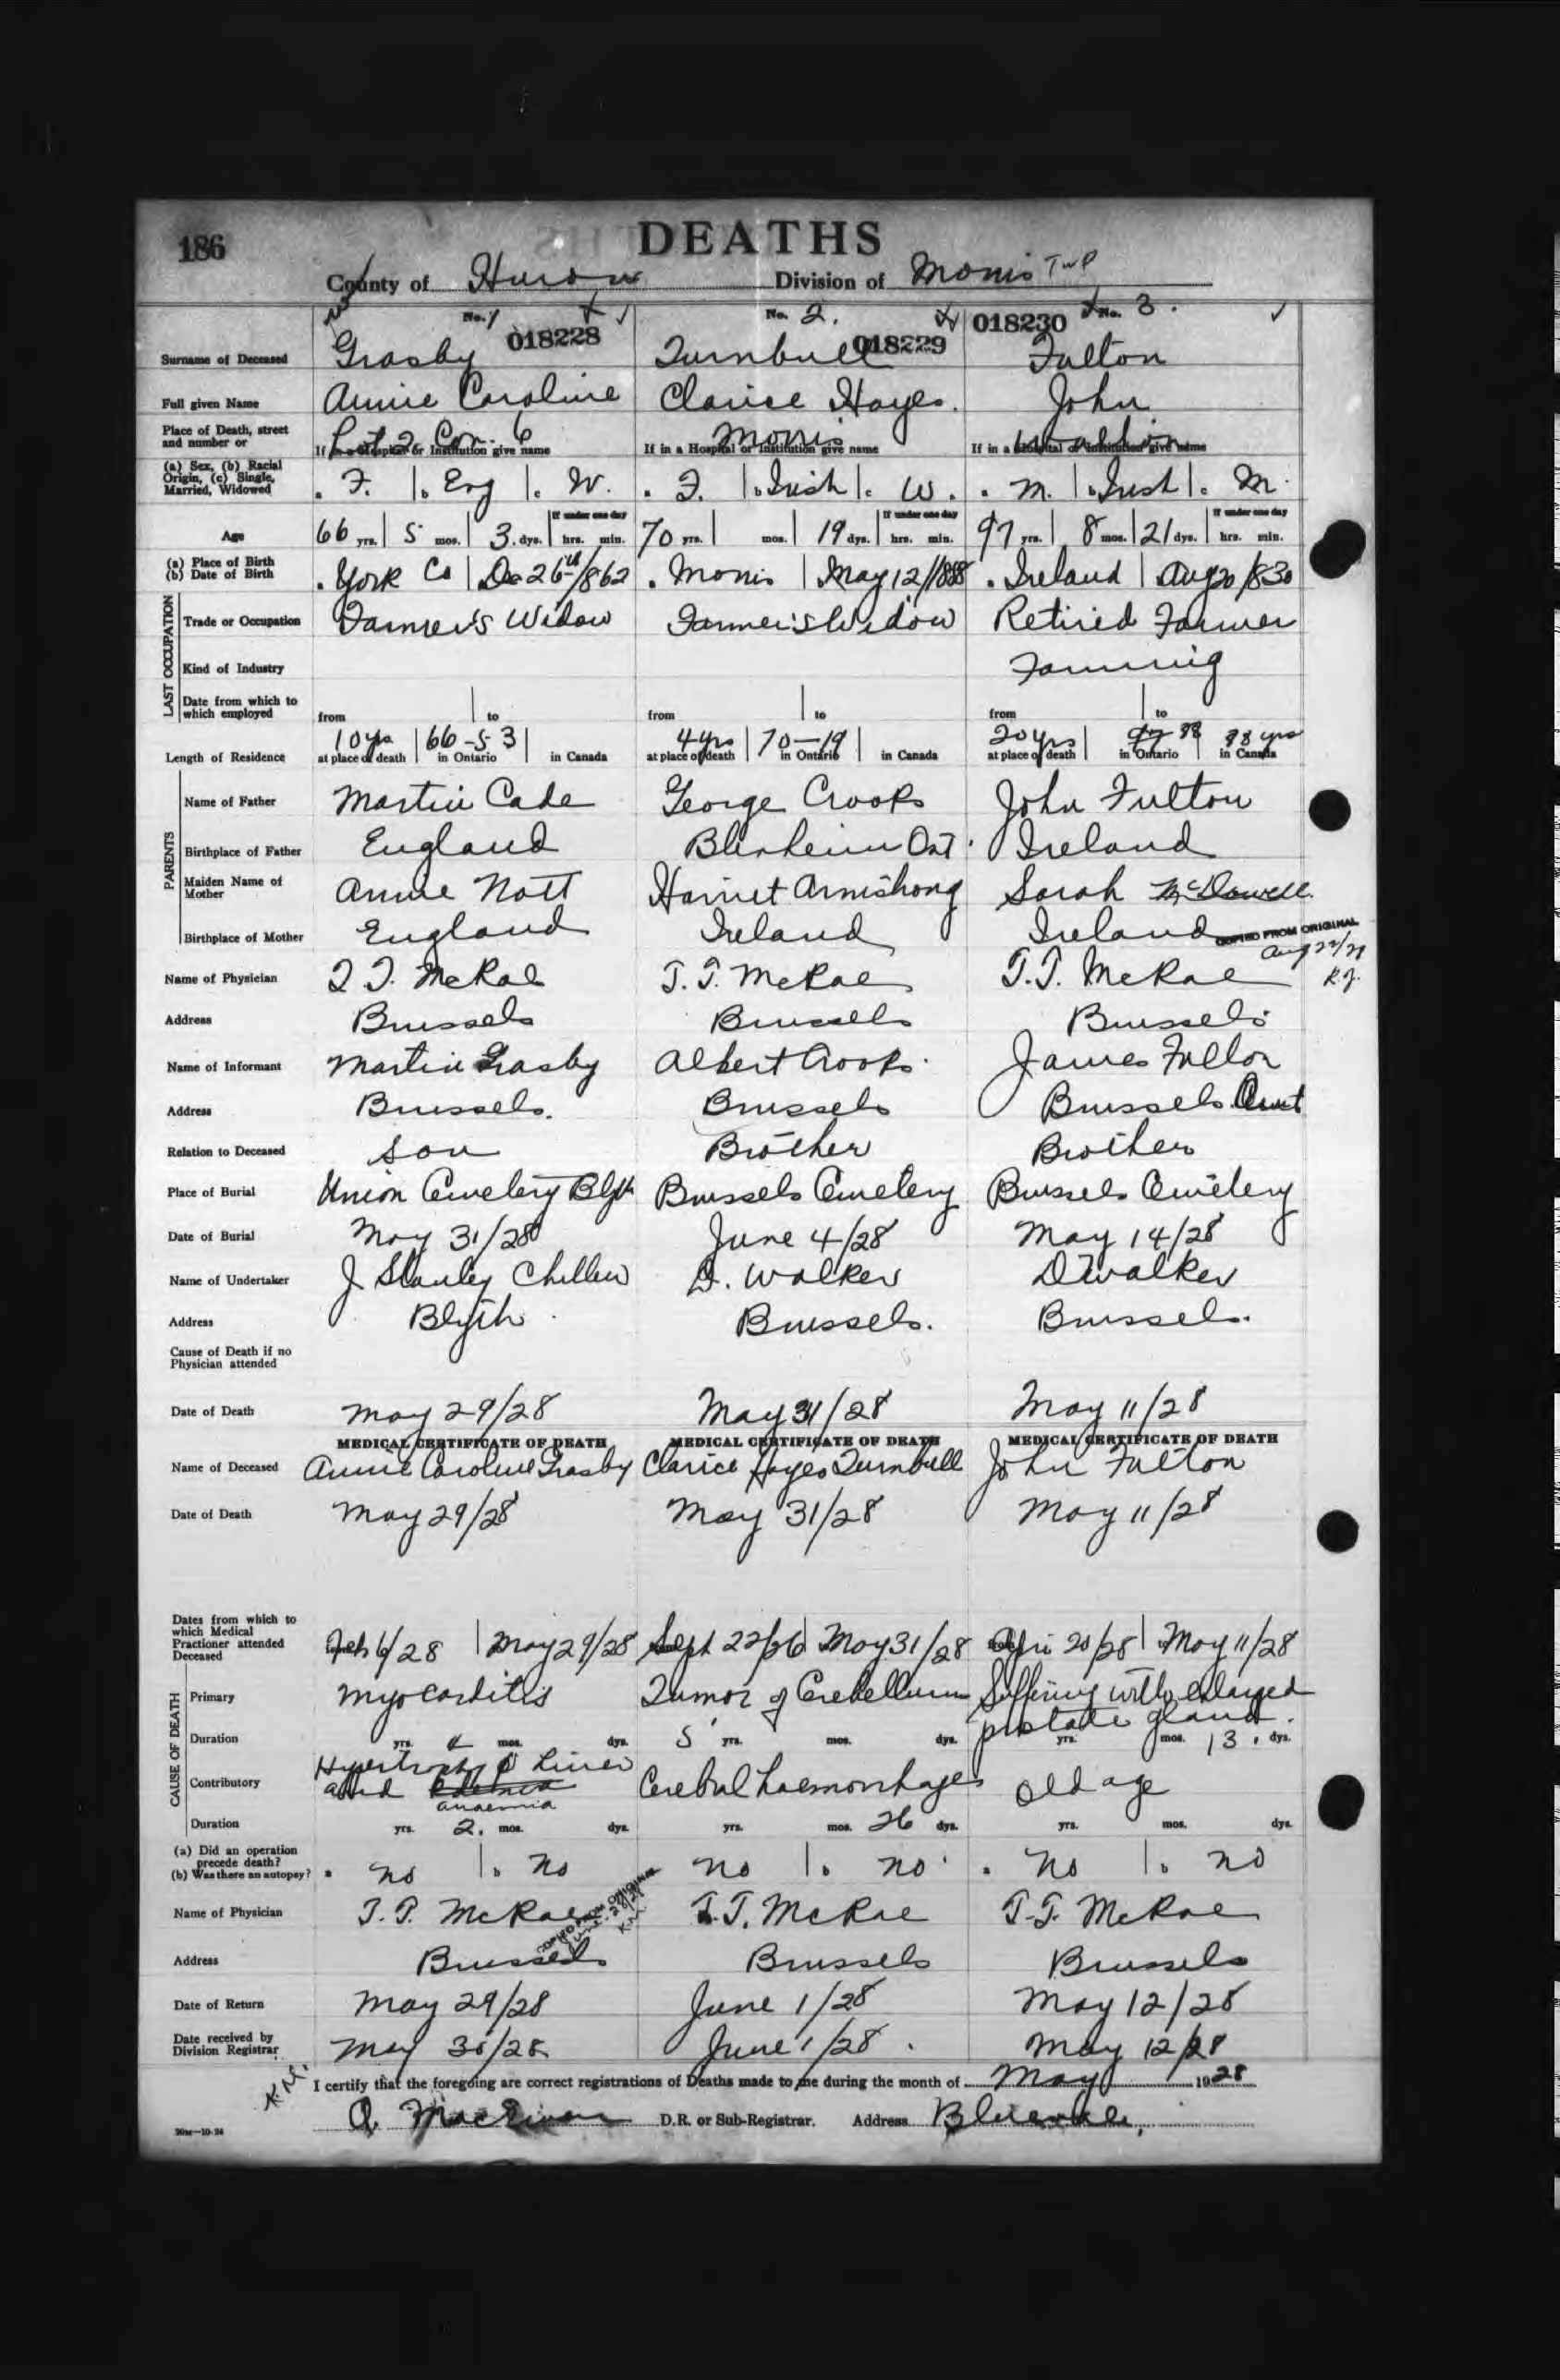 186
DEATHS
County of Huron Division of Morris Twp
No. 1 018228 No. 2. 018229 018230 No. 3.
Surname of Deceased Grasby Turnbull Fulton
Full given Name Annie Caroline Clarice Hayes. John
Place of Death, street and number or Lot 2 Con. 6 Morris
If in a Hospital or Institution give name If in a Hospital or Institution give name If in a Hospital or Institution give name
(a) Sex, (b) Racial Origin, (c) Single, Married, Widowed a F. b Eng c W. a F. b Irish c W. a M. b Irish c M.
If under one day If under one day If under one day
Age 66 yrs. 5 mos. 3 dys. hrs. min. 70 yrs. mos. 19 dys. hrs. min. 97 yrs. 8 mos. 21 dys. hrs. min.
(a) Place of Birth (b) Date of Birth York Co Dec 26th/1862 Morris May 12/1858 Ireland Aug 20/830
LAST OCCUPATION
Trade or Occupation Farmer's Widow Farmer's Widow Retired Farmer
Kind of Industry Farming
Date from which to which employed from to from to from to
Length of Residence 10 yrs at place of death 66-5-3 in Ontario in Canada 4 yrs at place of death 70-19 in Ontario in Canada 20 yrs at place of death 88 in Ontario 88 yrs in Canada
PARENTS
Name of Father Martin Cade George Crooks John Fulton
Birthplace of Father England Blenheim Ont. Ireland
Maiden Name of Mother Annie Nott Harriet Armstrong Sarah McDowell
Birthplace of Mother England Ireland Ireland
COPIED FROM ORIGINAL
Name of Physician T. T. McRae T. T. McRae T. T. McRae
Address Brussels Brussels Brussels
Name of Informant Martin Grasby Albert Crooks James Fulton
Address Brussels. Brussels Brussels Ont
Relation to Deceased Son Brother Brother
Place of Burial Union Cemetery Blyth Brussels Cemetery Brussels Cemetery
Date of Burial May 31/28 June 4/28 May 14/28
Name of Undertaker J. Stanley Chellew D. Walker D Walker
Address Blyth Brussels. Brussels.
Cause of Death if no Physician attended
Date of Death May 29/28 May 31/28 May 11/28
MEDICAL CERTIFICATE OF DEATH MEDICAL CERTIFICATE OF DEATH MEDICAL CERTIFICATE OF DEATH
Name of Deceased Annie Caroline Grasby Clarice Hayes Turnbull John Fulton
Date of Death May 29/28 May 31/28 May 11/28
Dates from which to which Medical Practioner attended Deceased Feb 6/28 May 29/28 Sept 22/26 May 31/28 Apri 20/28 May 11/28
CAUSE OF DEATH
Primary Myocarditis Tumor of Cerebellum Suffering with enlarged prostate gland.
Duration yrs. 4 mos. dys. 5 yrs. mos. dys. yrs. mos. 13. dys.
Contributory Hypertrophy of Liver and anaemia Cerebral haemorrhages old age
Duration yrs. 2. mos. dys. yrs. mos. 26 dys. yrs. mos. dys.
(a) Did an operation precede death? (b) Was there an autopsy? a no b no no b no. no b no
COPIED FROM ORIGINAL
Name of Physician T. T. McRae T. T. McRae T. T. McRae
Address Brussels Brussels Brussels
Date of Return May 29/28 June 1/28 May 12/28
Date received by Division Registrar May 30/28 June 1/28. May 12/28
K.M.
I certify that the foregoing are correct registrations of Deaths made to me during the month of May 1928
A. MacEwen D.R. or Sub-Registrar. Address Bluevale,
20m—10-24